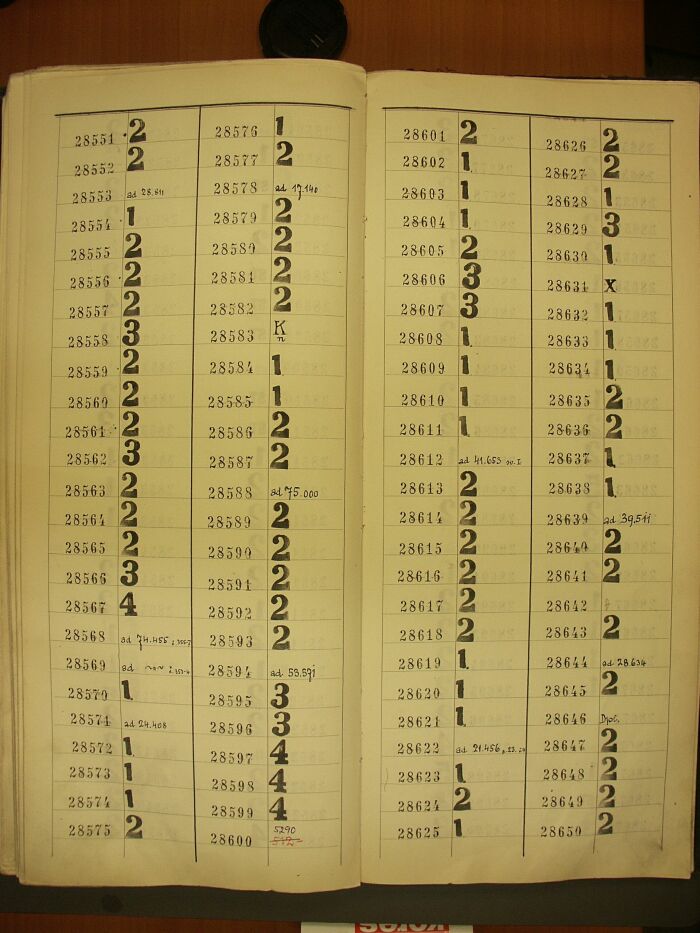 28551 2
28552 2
28553 ad 28.811
28554 1
28555 2
28556 2
28557 2
28558 3
28559 2
28560 2
28561 2
28562 3
28563 2
28564 2
28565 2
28566 3
28567 4
28568 ad 74.455
28569 ad
28570 1
28571 ad 24.408
28572 1
28573 1
28574 1
28575 2
28576 1
28577 2
28578 ad 17.140
28579 2
28580 2
28581 2
28582 2
28583 K n
28584 1
28585 1
28586 2
28587 2
28588 ad 75.000
28589 2
28590 2
28591 2
28592 2
28593 2
28594 ad 53.591
28595 3
28596 3
28597 4
28598 4
28599 4
28600 5290
28601 2
28602 1
28603 1
28604 1
28605 2
28606 3
28607 3
28608 1
28609 1
28610 1
28611 1
28612 ad 41.653
28613 2
28614 2
28615 2
28616 2
28617 2
28618 2
28619 1
28620 1
28621 1
28622 ad 21.456
28623 1
28624 2
28625 1
28626 2
28627 2
28628 1
28629 3
28630 1
28631 X
28632 1
28633 1
28634 1
28635 2
28636 2
28637 1
28638 1
28639 ad 39.511
28640 2
28641 2
28642
28643 2
28644 ad 28.634
28645 2
28646
28647 2
28648 2
28649 2
28650 2